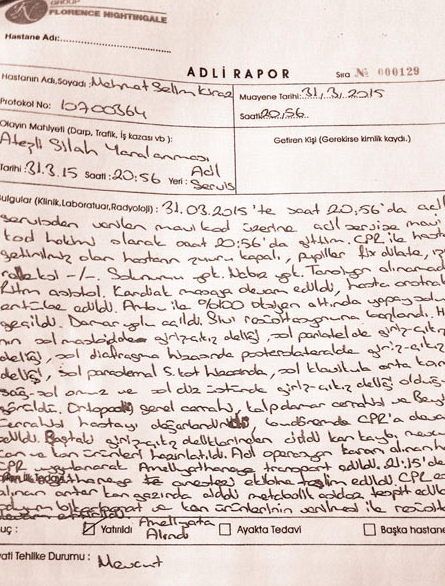 GROUP
FLORENCE NIGHTINGALE
Hastane Adı:
ADLİ RAPOR
Sıra № 000129
Hastanın Adı,Soyadı: Mehmet Selim Kiraz
Muayene Tarihi: 31.3.2015
Protokol No: 10700364
Saati: 20:56
Olayın Mahiyeti (Darp, Trafik, İş kazası vb):
Getiren Kişi (Gerekirse kimlik kaydı.)
Ateşli Silah Yaralanması
Tarihi: 31.3.15 Saati: 20:56 Yeri: Acil Servis
Bulgular (Klinik,Laboratuar,Radyoloji): 31.03.2015'te saat 20:56'da acil
servisden verilen mavi kod üzerine acil servise mavi
kod hekimi olarak saat 20:56'da gittim. CPR ile hasta
getirilmiş olan hastanın şuuru kapalı, pupiller fix dilate,
refleksi -/-. Solunumu yok. Nabız yok. Tansiyon alınamadı
Ritm asistol. Kardiak masaja devam edildi, hasta orotrakeal
entübe edildi. Ambu ile %100 oksijen altında yapay
geçildi. Damar yolu açıldı. Sıvı başlandı.
sol giriz-çıkız deliği, sol parietalde giriz-çıkız
deliği, sol diafragma hizasında posterolateralde giriz-çıkız
deliği, sol 5. kot hizasında, sol klavikula orta
sağ-sol omuz ve sol diz üstünde giriz-çıkız deliği
görüldü. Ortopedi, genel cerrahi, kalp damar cerrahi ve Beyin
cerrahisi hastayı değerlendirdi, CPR'a devam
edildi. Baştaki giriz-çıkız deliklerinden ciddi kan kaybı
kan ve kan ürünleri hazırlatıldı. Acil operasyon kararı alınan
CPR uygulanarak Ameliyathaneye transport edildi. 21:15'da
Ameliyathanede anestezi ekibine teslim edildi. CPR
alınan arter kan gazında ciddi metabolik asidoz tespit edildi
bikarbonat ve kan ürünlerinin verilmesi ile
Yatırıldı Ameliyata Alındı
Ayakta Tedavi
Başka hastane
Hayati Tehlike Durumu: Mevcut